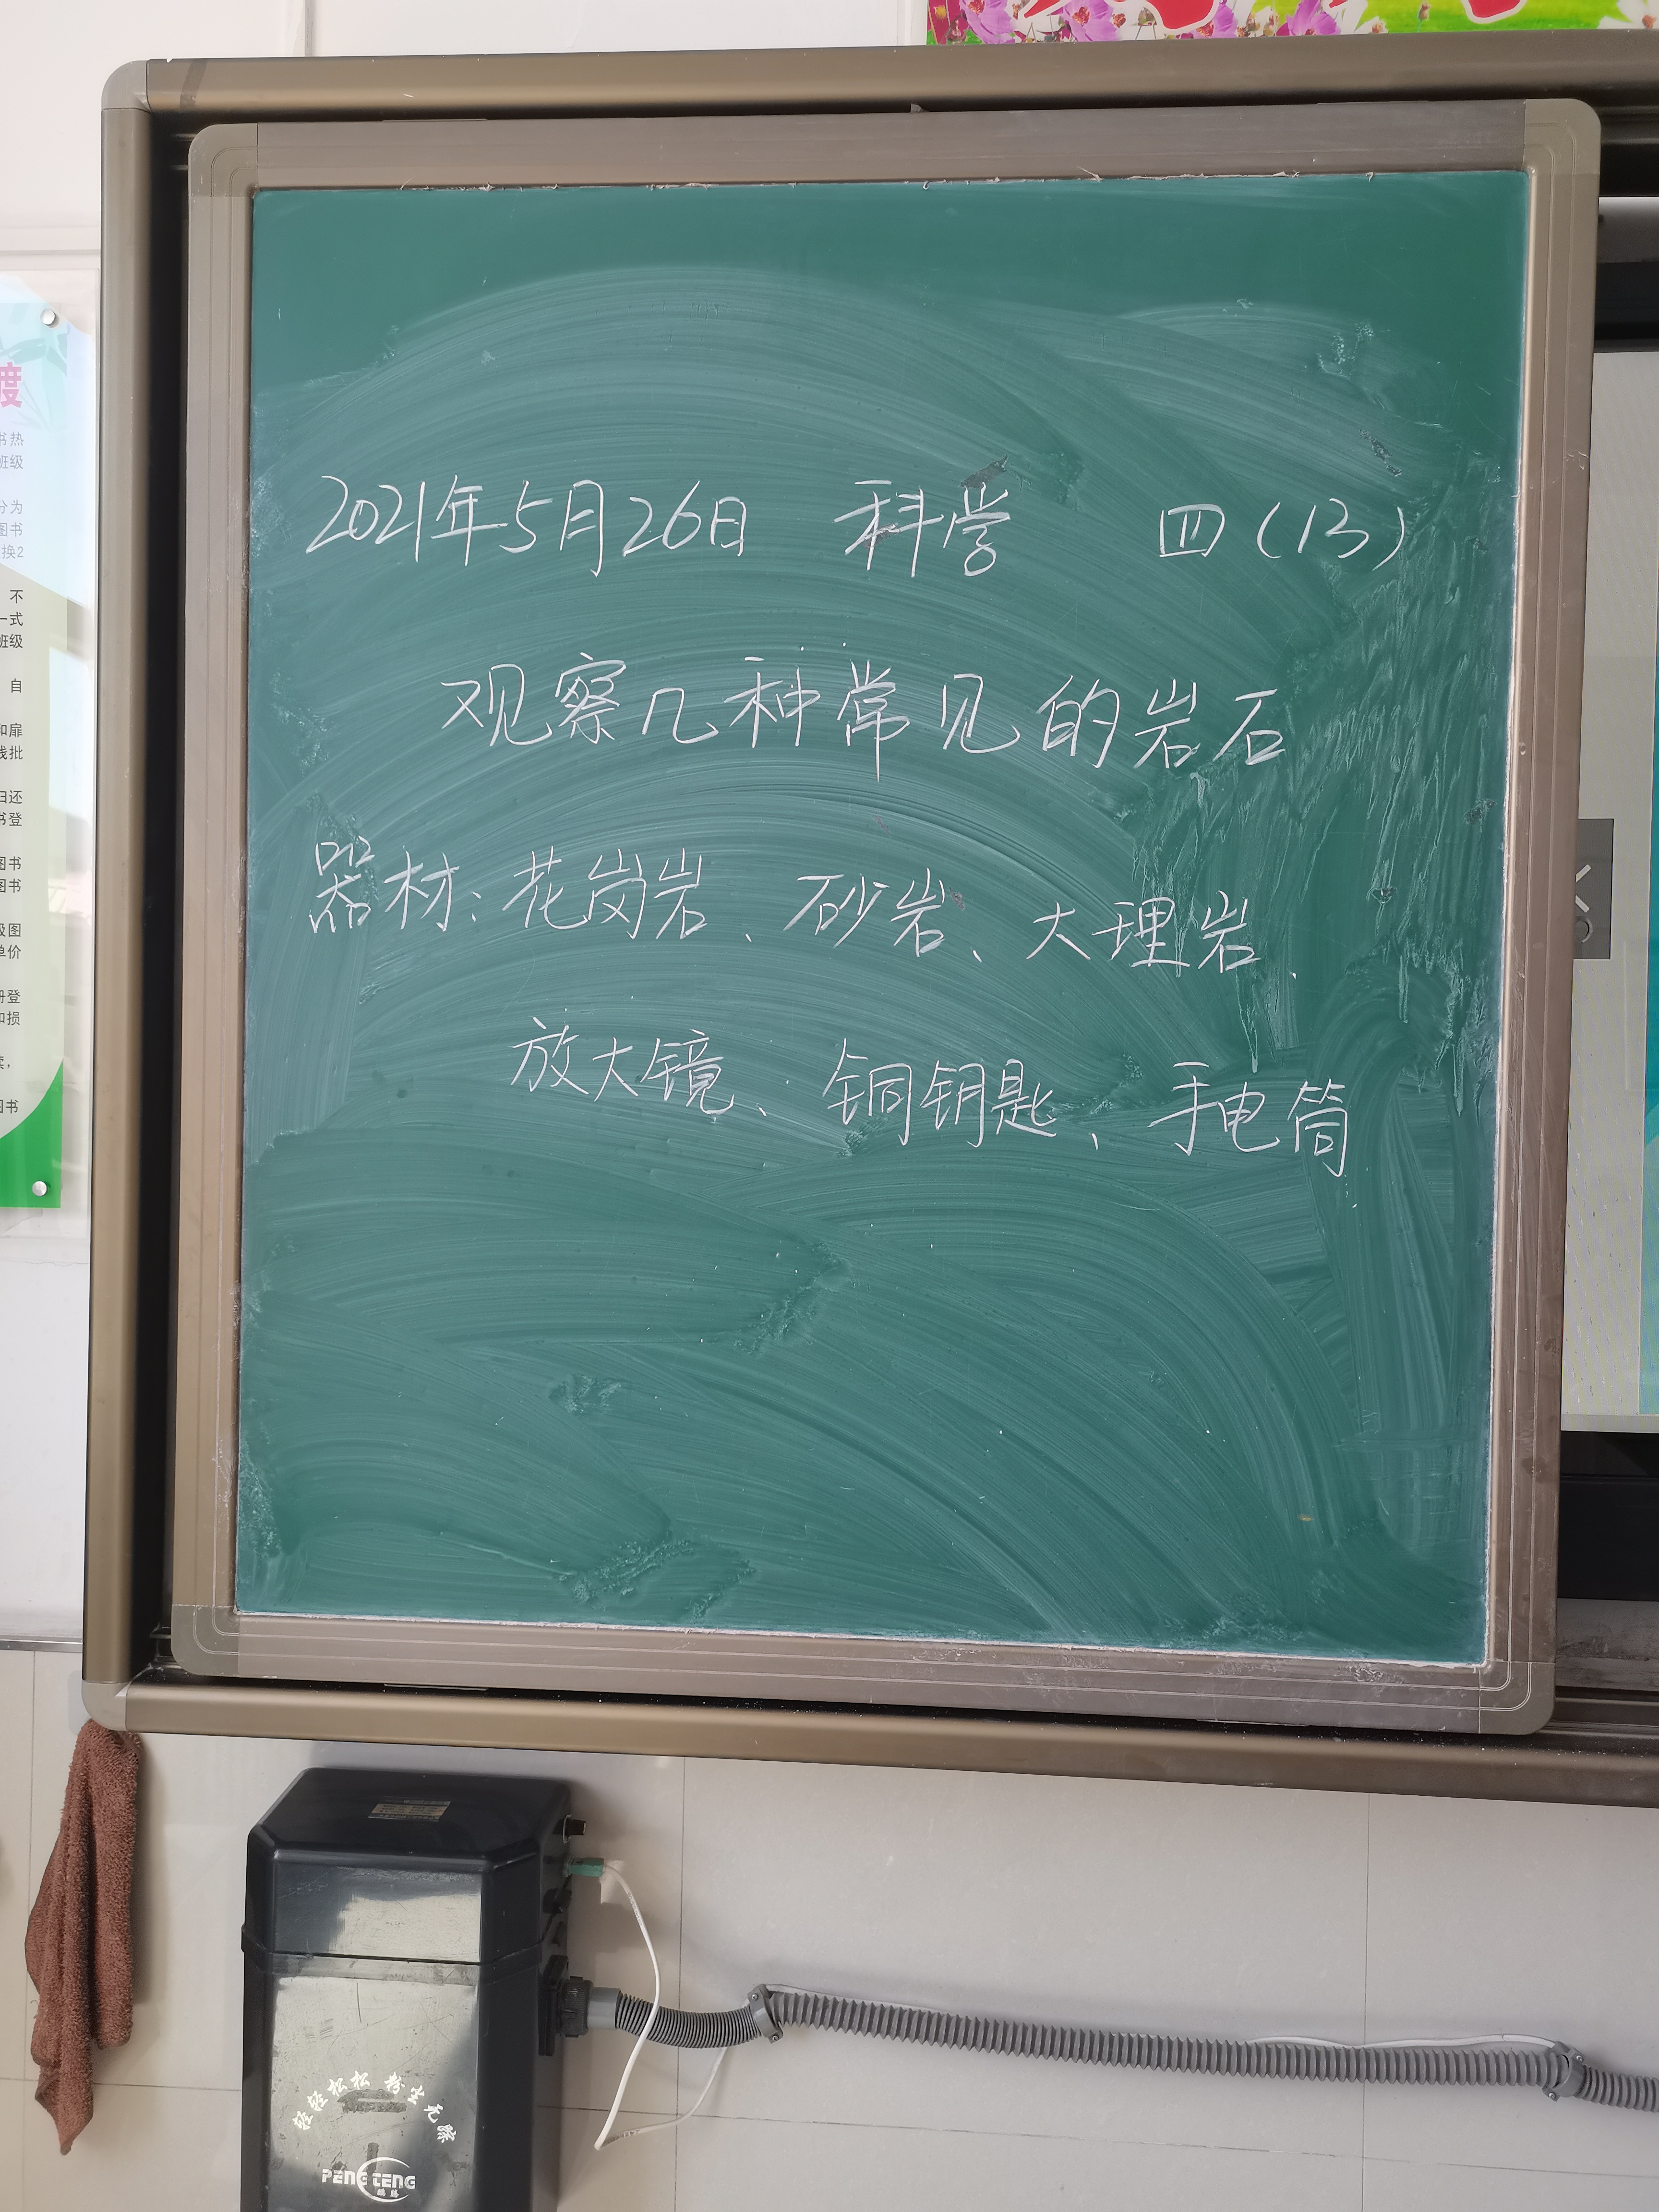 2021年5月26日 科学 四(13)
观察几种常见的岩石
器材:花岗岩、砂岩、大理岩、
放大镜、铜钥匙、手电筒
度
书热
班级
分为
图书
换2
不
一式
班级
自
和扉
线批
归还
书登
图书
图书
及图
单价
册登
和损
图书
轻轻松松 粉尘无踪
PENG TENG
鹏腾